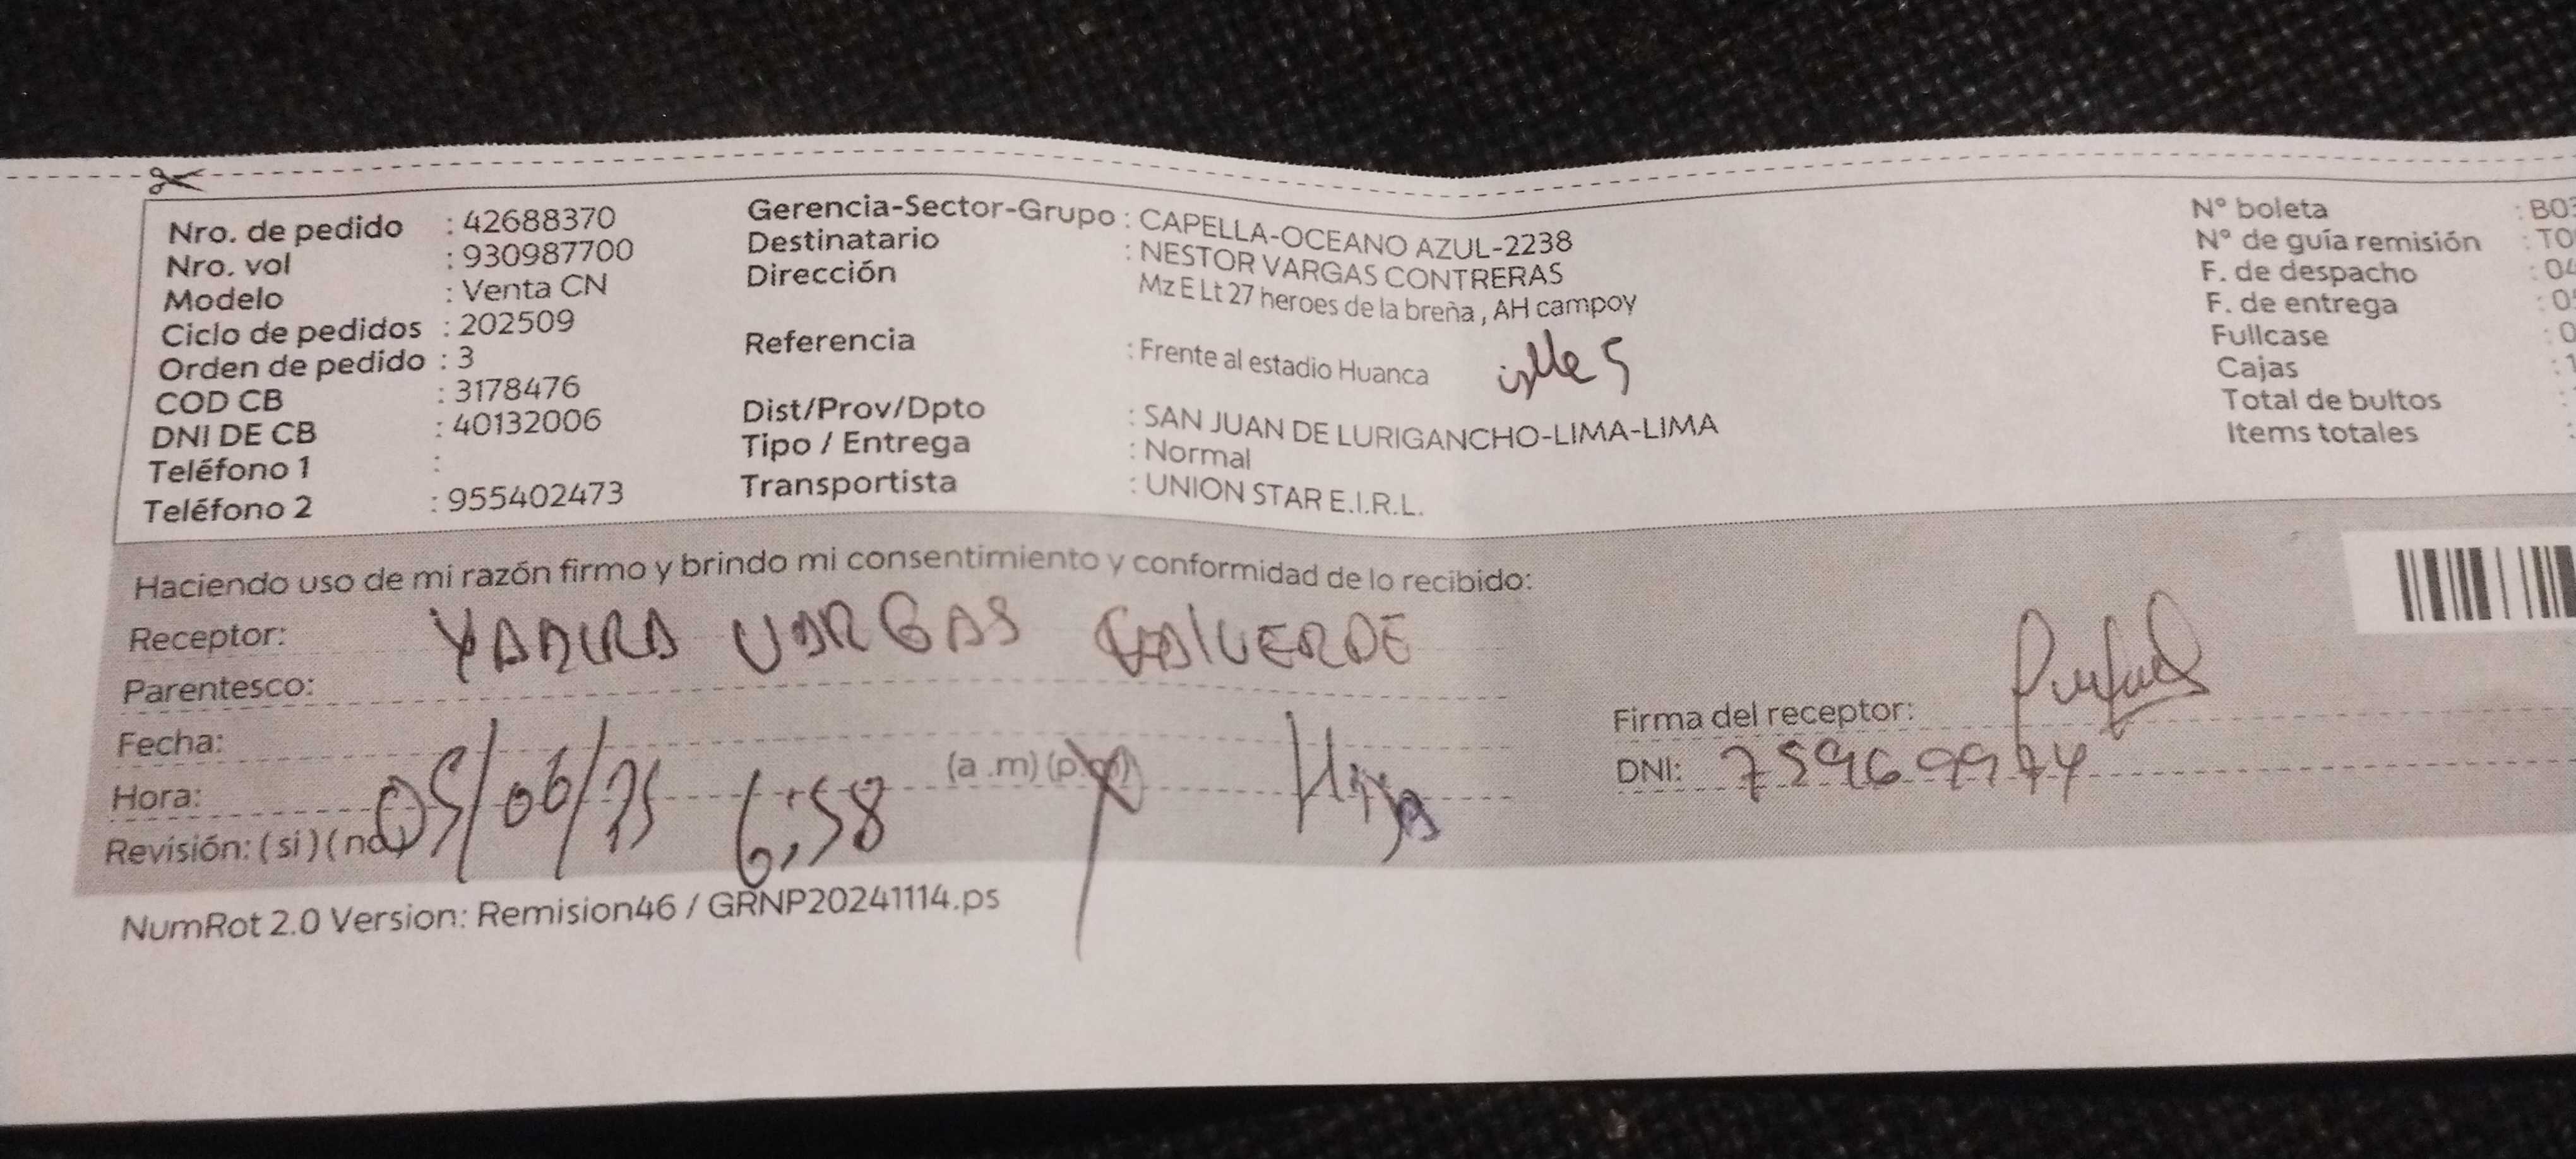 Nro. de pedido : 42688370
Nro. vol : 930987700
Modelo : Venta CN
Ciclo de pedidos : 202509
Orden de pedido : 3
COD CB : 3178476
DNI DE CB : 40132006
Teléfono 1 :
Teléfono 2 : 955402473
Gerencia-Sector-Grupo : CAPELLA-OCEANO AZUL-2238
Destinatario : NESTOR VARGAS CONTRERAS
Dirección Mz E Lt 27 heroes de la breña, AH campoy
Referencia : Frente al estadio Huanca
Dist/Prov/Dpto : SAN JUAN DE LURIGANCHO-LIMA-LIMA
Tipo / Entrega : Normal
Transportista : UNION STAR E.I.R.L.
N° boleta : B03
N° de guía remisión : T0
F. de despacho : 04
F. de entrega : 0
Fullcase : 0
Cajas : 1
Total de bultos :
Items totales :
Haciendo uso de mi razón firmo y brindo mi consentimiento y conformidad de lo recibido:
Receptor: VARGAS
Parentesco:
Fecha:
Hora: 05/06/25 6:58 (a.m) (p.m) Hija
Revisión: (si) (no)
Firma del receptor:
DNI:
NumRot 2.0 Version: Remision46 / GRNP20241114.ps